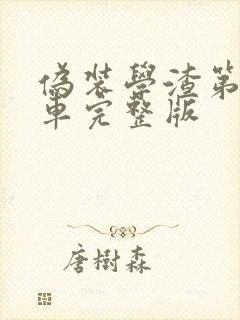 偽裝學渣第
車完整版
唐樹森